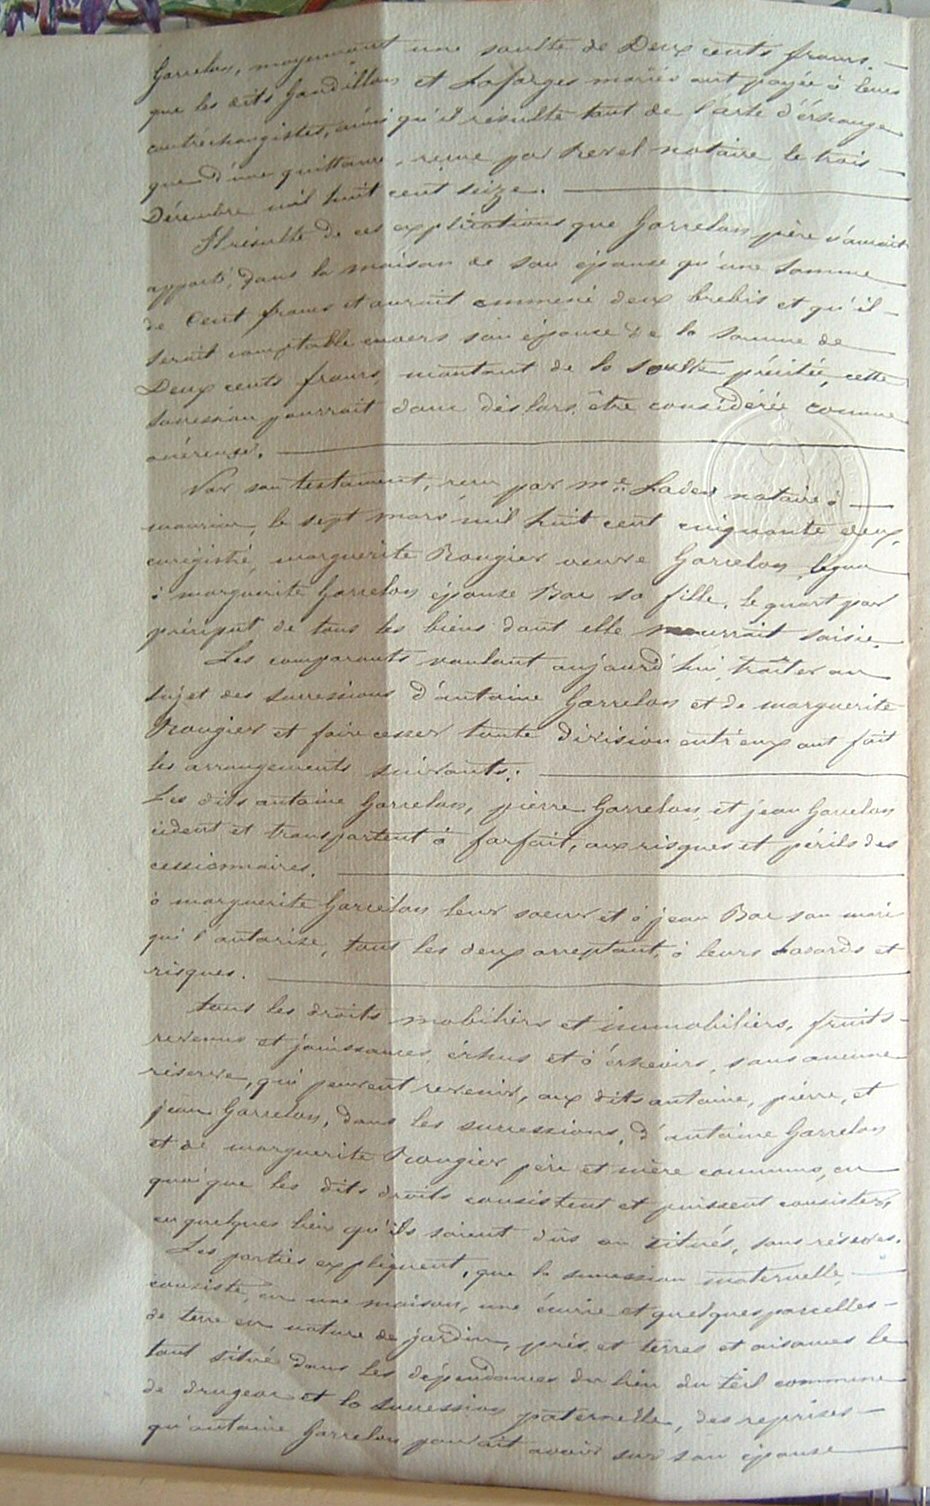 Garrelon, moyennant une soulte de Deux cents francs. —
que les dits Gandillon et Lafarges mariés ont payée à leurs
coutréchangistes, ainsi qu'il résulte tant de l'acte d'échange
que d'une quittance, reçue par Revel notaire le trois —
Décembre mil huit cent seize. —
Il résulte de ces explications que Garrelon père n'aurait
apporté, dans la maison de son épouse qu'une somme
de Cent francs et aurait emmené deux brebis et qu'il —
serait comptable envers son épouse de la somme de —
Deux cents francs, montant de la soulte précitée, cette
succession pourrait donc dès lors, être considérée comme
onéreuse. —
Par son testament, reçu par Me. notaire à —
mauriac, le sept mars mil huit cent cinquante deux,
enrégistré, marguerite Rougier veuve Garrelon, légua
à marguerite Garrelon épouse Bac sa fille, le quart par
préciput de tous les biens dont elle mourrait saisie.
Les comparants voulant aujourd'hui, traiter au
sujet des successions d'antoine Garrelon et de marguerite
Rougier et faire cesser toute division entr'eux ont fait
les arrangements suivants: —
Les dits antoine Garrelon, pierre Garrelon et jean Garrelon
cèdent et transportent à forfait, aux risques et périls des
cessionnaires. —
à marguerite Garrelon leur soeur et à jean Bac son mari
qui l'autorise, tous les deux acceptant, à leurs hasards et
risques. —
tous les droits mobiliers et immobiliers, fruits —
revenus et jouissances, échus et à échevoir, sans aucune
réserve, qui peuvent revenir, aux dits antoine, pierre, et
jean Garrelon, dans les successions, d'antoine Garrelon
et de marguerite Rougier père et mère communs, en
quoi que les dits droits consistent et puissent consister,
en quelques lieux qu'ils soient dûs ou situés, sans réserves.
Les parties expliquent, que la succession maternelle, —
consiste, en une maison, une écurie et quelques parcelles —
de terre en nature de jardin, prés et terres et aisances le
tout situé dans les dépendances du lieu du teil commune
de drugeac et la succession paternelle, des reprises —
qu'antoine Garrelon pouvait avoir sur son épouse —